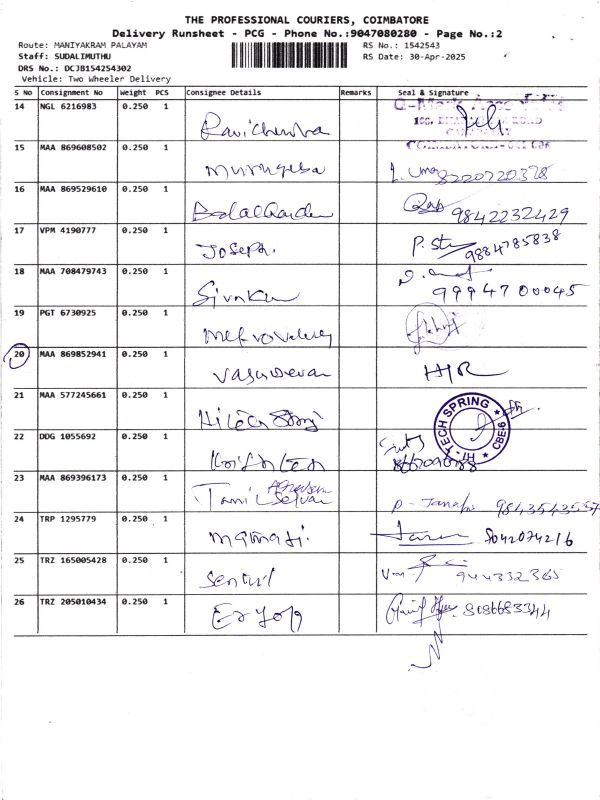 THE PROFESSIONAL COURIERS, COIMBATORE
Delivery Runsheet - PCG - Phone No.:9047080280 - Page No.:2
Route: MANIYAKRAM PALAYAM RS No.: 1542543
Staff: SUDALIMUTHU RS Date: 30-Apr-2025
DRS No.: DCJB154254302
Vehicle: Two Wheeler Delivery
S No Consignment No Weight PCS Consignee Details Remarks Seal & Signature
14 NGL 6216983 0.250 1 Ravichandra
15 MAA 869608502 0.250 1 Murugesa 8220720378
16 MAA 869529610 0.250 1 9842232429
17 VPM 4190777 0.250 1 Joseph. 9884785838
18 MAA 708479743 0.250 1 Sivakum 9994700045
19 PGT 6730925 0.250 1
20 MAA 869852941 0.250 1 Vasudevan H/R
21 MAA 577245661 0.250 1 HI-TECH SPRING CBE-6
22 DDG 1055692 0.250 1
23 MAA 869396173 0.250 1 Tamil Selvan
24 TRP 1295779 0.250 1
25 TRZ 165005428 0.250 1 Senthil 944332365
26 TRZ 205010434 0.250 1 8086683344